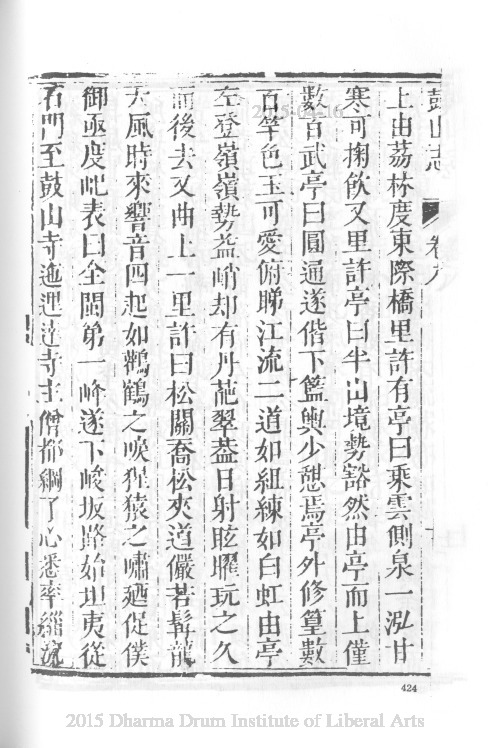 鼓山志
卷九
上由荔林度東際橋里許有亭曰乘雲側泉一泓甘
寒可掬飲又里許亭曰半山境勢豁然由亭而上僅
數百武亭曰圓通遂偕下籃輿少憩焉亭外修篁數
百竿色玉可愛俯睇江流二道如組練如白虹由亭
左登嶺嶺勢益峭却有丹葩翠蓋日射眩曜玩之久
而後去又曲上一里許曰松關喬松夾道儼若髯龍
天風時來響音四起如鸛鶴之唳猩猿之嘯廼促僕
御亟度屴表曰全閩第一峰遂下峻坂路始坦夷從
石門至鼓山寺迤邐達寺主僧都綱了心悉率緇流
424
2015 Dharma Drum Institute of Liberal Arts